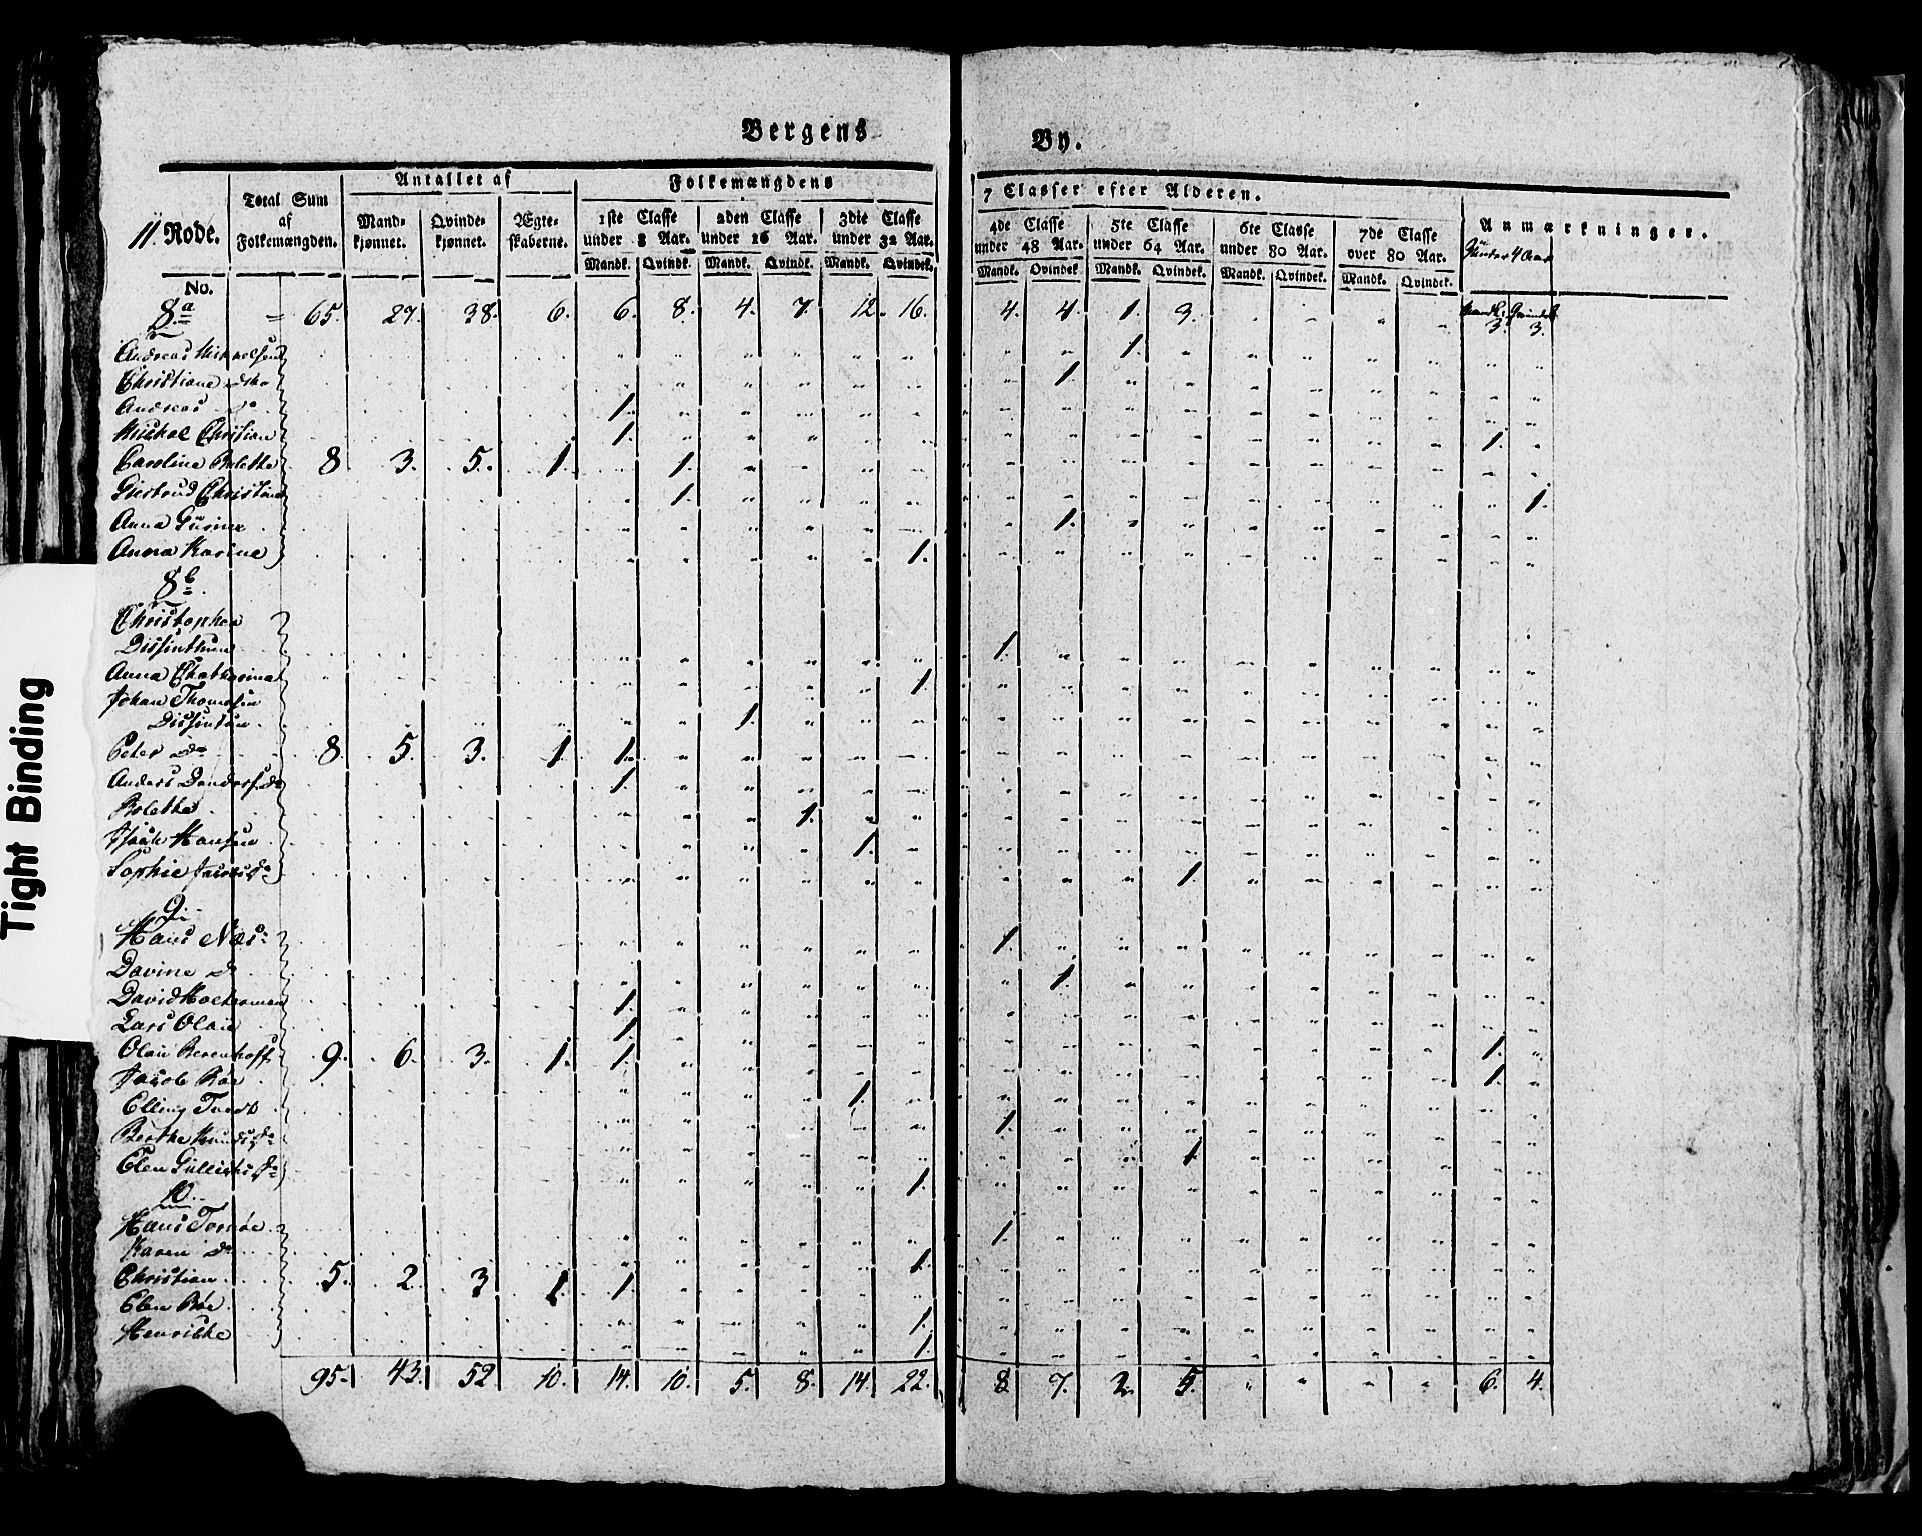 Bergens By.
11. Rode.
Total Sum af Folkemængden.
Antallet af
Mand-kjønnet. Qvinde-kjønnet. Ægte-skaberne.
Folkemængdens 7 Classer efter Alderen.
1ste Classe under 8 Aar. 2den Classe under 16 Aar. 3die Classe under 32 Aar. 4de Classe under 48 Aar. 5te Classe under 64 Aar. 6te Classe under 80 Aar. 7de Classe over 80 Aar.
Anmærkninger.
under 4 Aar
Mandk. Qvindk. Mandk. Qvindk. Mandk. Qvindek. Mandk. Qvindek. Mandk. Qvindek. Mandk. Qvindek. Mandk. Qvindek.
Mandk. Qvindek.
No.
8.a = 65. 27. 38. 6. 6. 8. 4. 7. 12. 16. 4. 4. 1. 3. 3. 3.
Andreas Michaelsen 1.
Christiane 1.
Andreas do 1.
Michael Christian 1. 1.
Caroline Bolethe 8 3. 5. 1. 1.
Giertrud Christine 1. 1.
Anna Gurine 1.
Anna Karine 1.
8b
Christopher
Dissinthun 1.
Anna Chatharina 1.
Johan Thomesen
Dissintun 1.
Peter do 8 5. 3. 1 1.
Anders 1.
Bolethe 1.
Isaak Hansen 1.
Sophie Jacobsd. 1.
9.
Hans Næs 1.
Davine do 1.
David Mockerman 1.
Lars Olai 1.
Olai Berenhoff 9. 6. 3. 1. 1. 1.
Jacob Bøe 1. 1.
Elling Tvedt 1.
Berthe Knudsd. 1.
Elen 1.
10.
Hans Tornøe 1.
Karen do 1.
Christian 5. 2. 3 1. 1.
Elen Bøe 1.
Henrikke 1.
95. 43. 52 10. 14. 10. 5. 8. 14. 22. 8 7. 2. 5. 6. 4.
Tight Binding